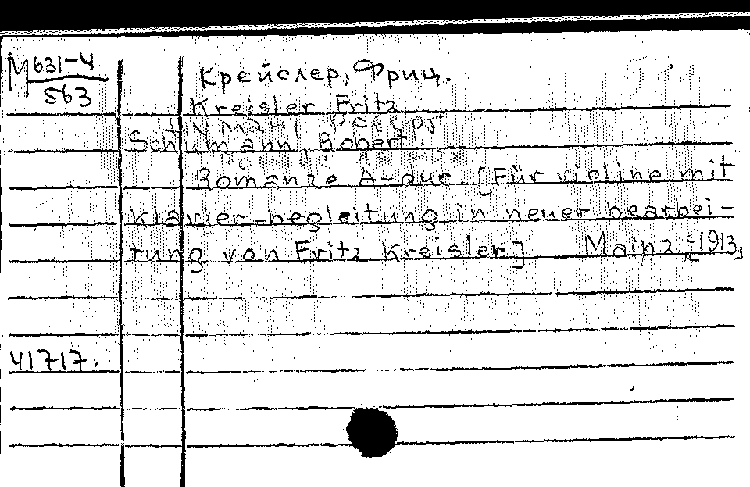 М 631-4
563
Крейслер, Фриц.
Kreisler Fritz
Schumann, Robert.
Romanze A-dur. [Für violine mit
klavier-begleitung in neuer bearbei-
tung von Fritz Kreisler] Mainz, [1913]
41717.